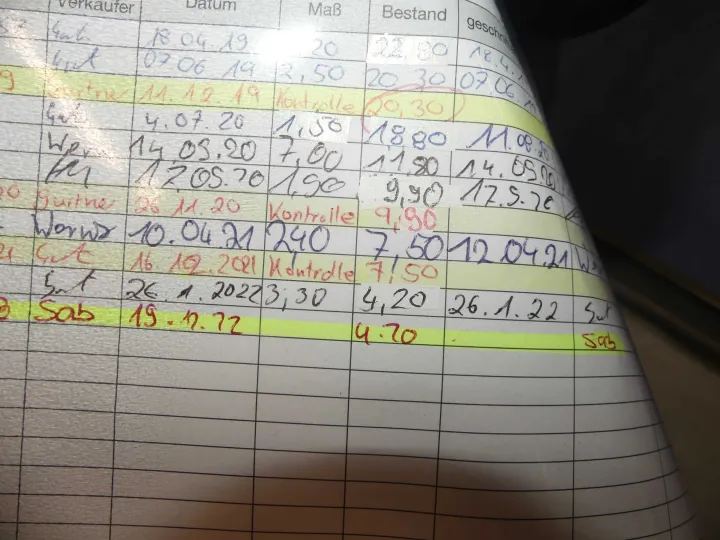 Verkäufer Datum Maß Bestand
Gut 18.04.19 ,20 22,80 18.4.
Gut 07.06.19 2,50 20,30 07.06
9 11.12.19 Kontrolle 20,30
Gut 4.07.20 1,50 18,80 11.08.
Wer 14.09.20 7,00 11,80 14.09.20
17.09.20 1,90 9,90 17.9.20
26.11.20 Kontrolle 9,90
10.04.21 2,40 7,50 12.04.21
21 Gut 16.12.2021 Kontrolle 7,50
Gut 26.1.2022 3,30 4,20 26.1.22 Gut
Sab 19.12.22 4.20 Sab